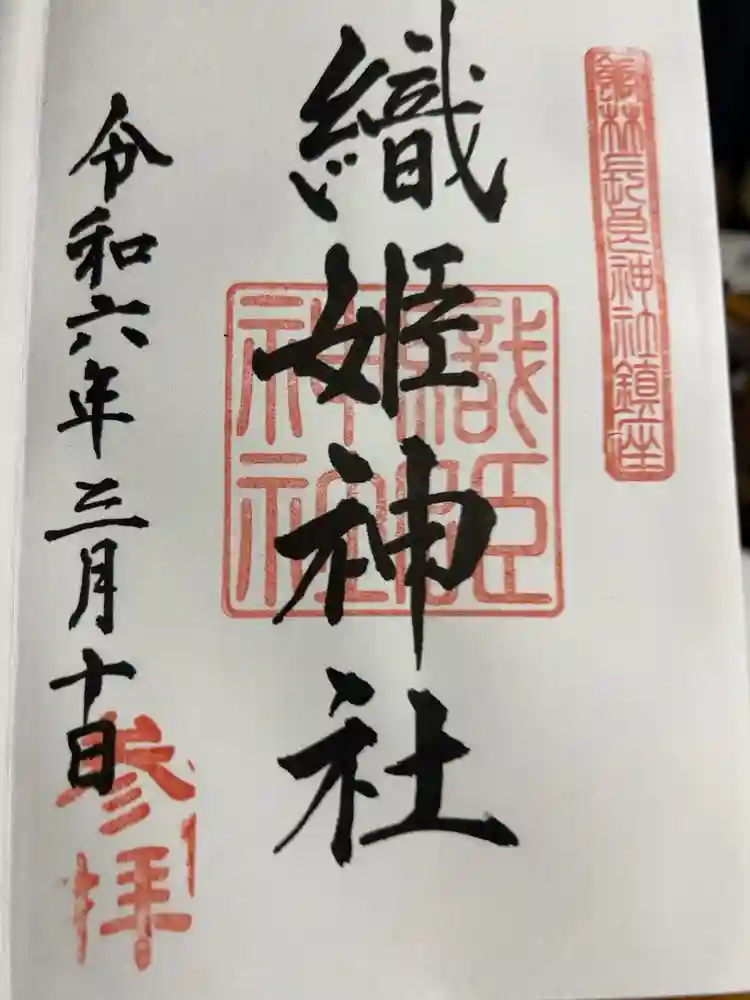 館林長良神社鎮座
織姫神社
織姫神社
令和六年三月十日
参拝